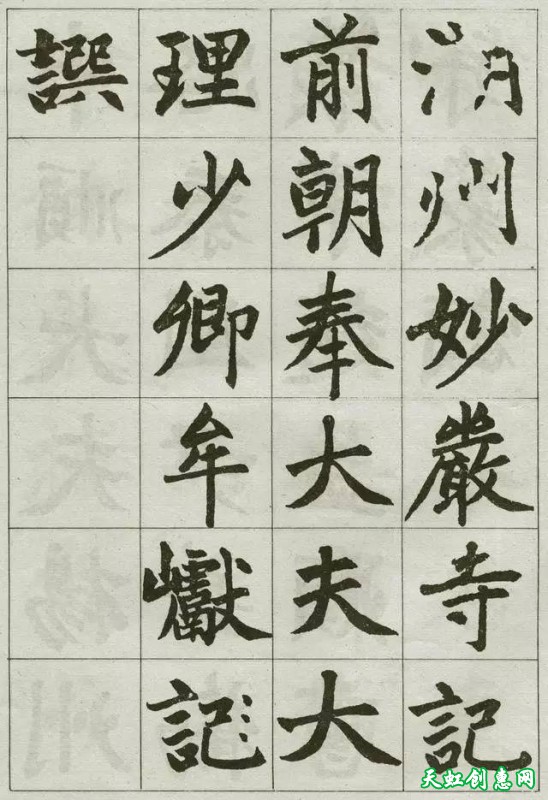 湖州妙嚴寺記
前朝奉大夫大
理少卿牟巘記
譔
天虹创惠网